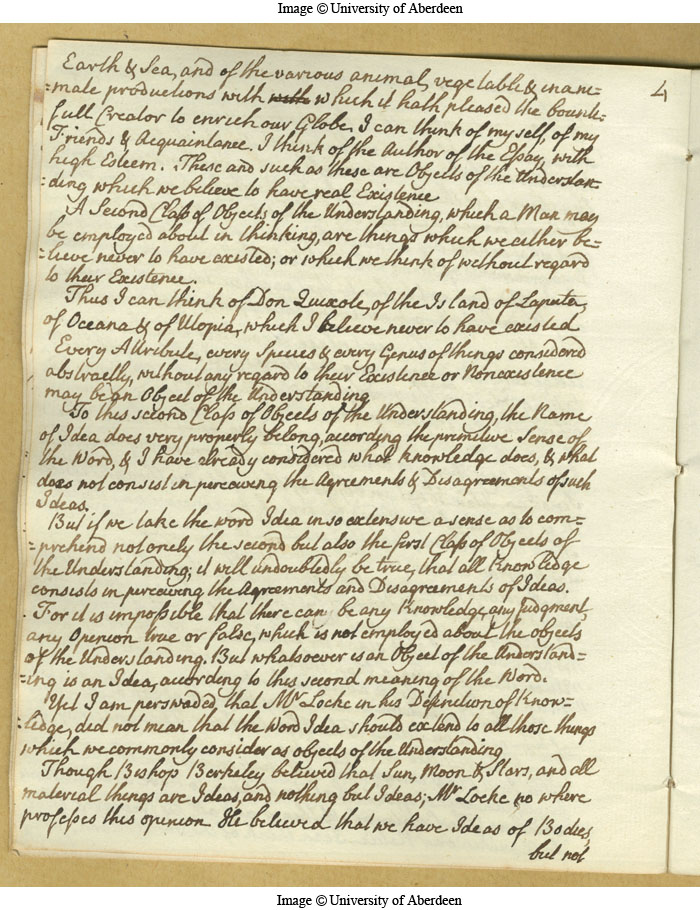 Image © University of Aberdeen
4
Earth & Sea, and of the various animal, vegetable & inani-
=mate productions with with which it hath pleased the bounti-
full Creator to enrich our Globe. I can think of myself, of my
Friends & Acquaintance. I think of the Author of the Essay with
high Esteem. These and such as these are Objects of the Understan-
=ding which we believe to have real Existence
A Second Class of Objects of the Understanding, which a Man may
be employed about in thinking, are things which we either be=
=lieve never to have existed; or which we think of without regard
to their Existence.
Thus I can think of Don Quixote, of the Island of Laputa,
of Oceana & of Utopia, which I believe never to have existed
Every Attribute, every Species & every Genus of things considered
abstractly, without any regard to their Existence or Nonexistence
may be an Object of the Understanding
To this second Class of Objects of the Understanding, the Name
of Idea does very properly belong, according the primitive Sense of
the Word, & I have already considered what knowledge does, & what
does not consist in perceiving the Agreements & Disagreements of such
Ideas.
But if we take the word Idea in so extensive a sense as to com=
=prehend not onely the second but also the first Class of Objects of
the Understanding; it will undoubtedly be true, that all Knowledge
consists in perceiving the Agreements and Disagreements of Ideas.
For it is impossible that there can be any Knowledge, any Judgment,
any Openion true or false, which is not employed about the objects
of the Understanding. But whatsoever is an Object of the Understand=
=ing is an Idea, according to this second meaning of the Word.
Yet I am perswaded, that Mr Locke in his Definition of Know=
=ledge, did not mean that the Word Idea should extend to all those things
which we commonly consider as objects of the Understanding
Though Bishop Berkeley believed that Sun, Moon & Stars, and all
material things are Ideas, and nothing but Ideas; Mr Locke no where
professes this opinion He believed that we have Ideas of Bodies,
but not
Image © University of Aberdeen